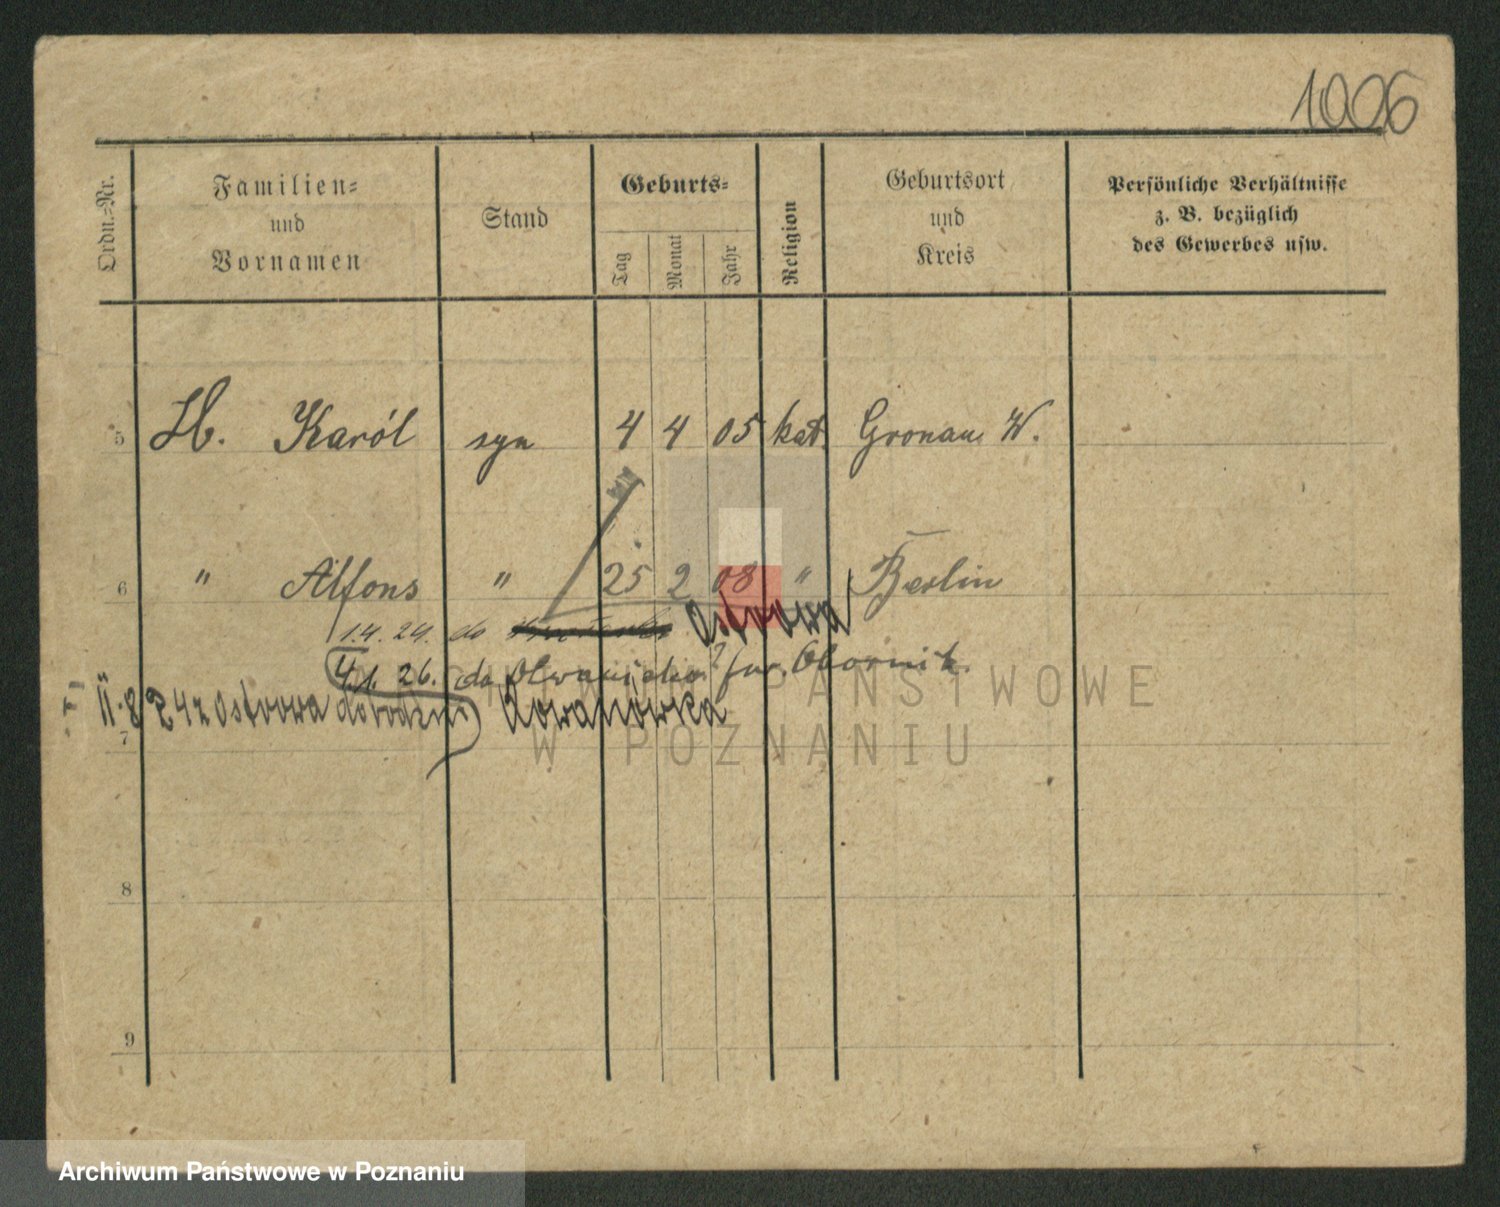 1006
Ordn.-Nr.
Familien-
und
Vornamen
Stand
Geburts-
Tag
Monat
Jahr
Religion
Geburtsort
und
Kreis
Persönliche Verhältnisse
z. B. bezüglich
des Gewerbes usw.
5 H. Karól syn 4 4 05 kat. Gronau W.
6 " Alfons " 25 2 08 " Berlin
1.4.24. do Ostrowa
4.1.26. do ? pow. Obornik.
II.8 24 z Ostrowa do rodzin Kowanówka
7
8
9
ARCHIWUM PAŃSTWOWE
W POZNANIU
Archiwum Państwowe w Poznaniu